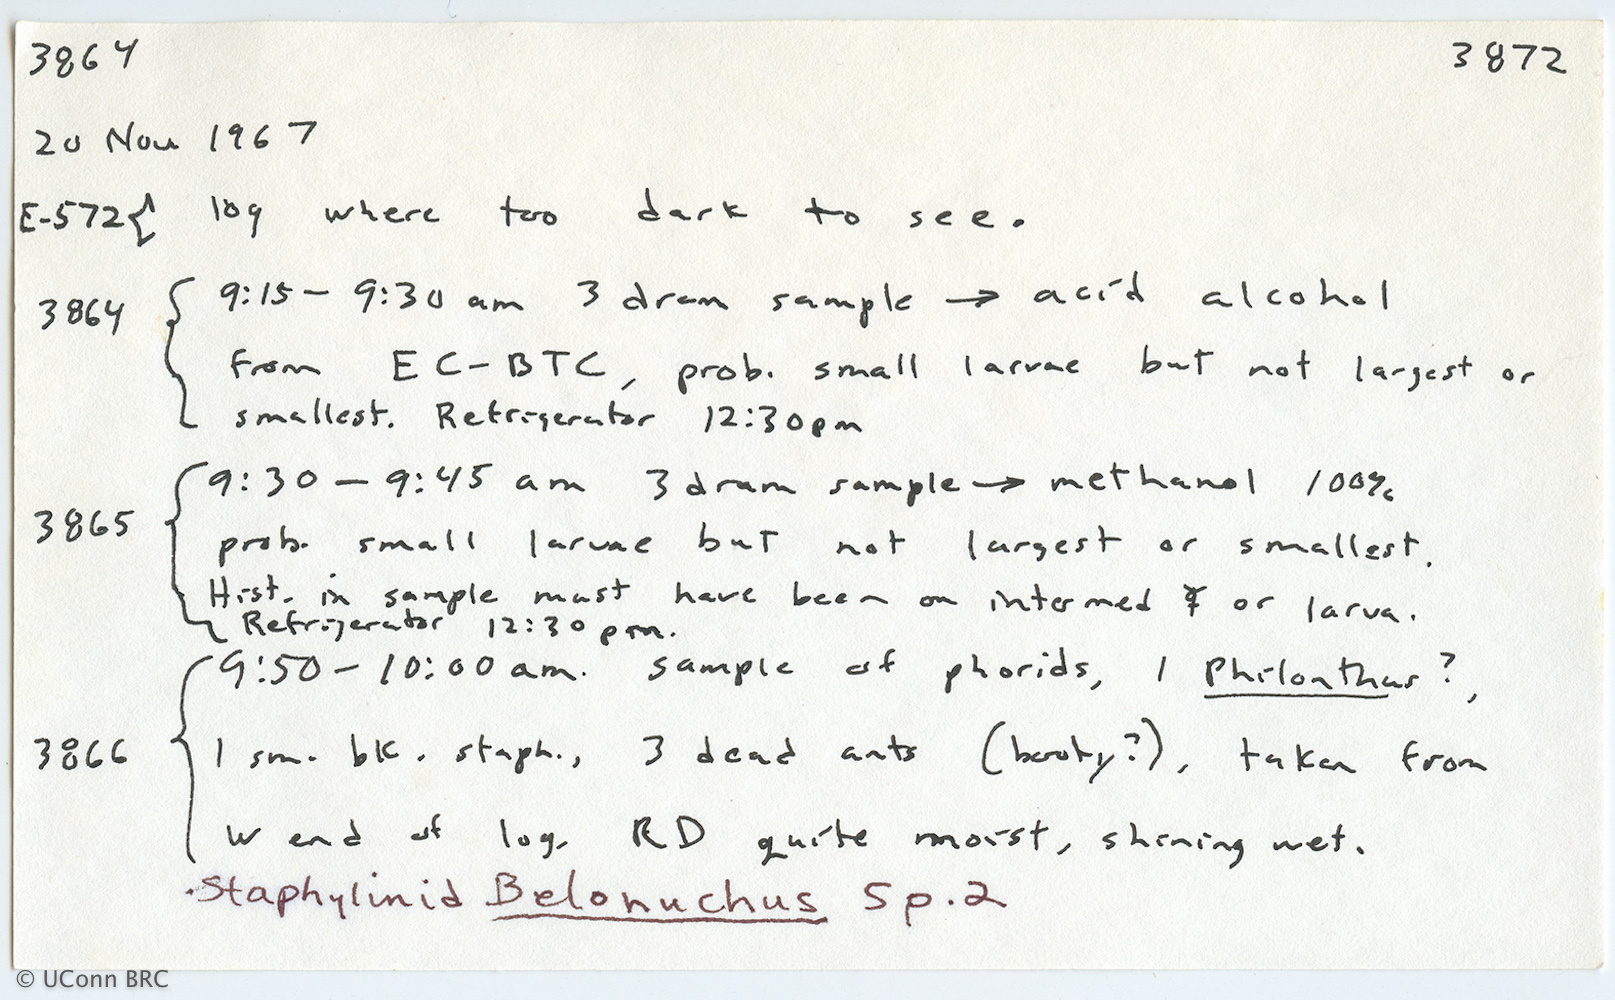 3864 3872
20 Nov 1967
E-572{ log where too dark to see.
3864 { 9:15 - 9:30 am 3 dram sample → acid alcohol
from EC-BTC, prob. small larvae but not largest or
smallest. Refrigerator 12:30pm
3865 { 9:30 - 9:45 am 3 dram sample → methanol 100%
prob. small larvae but not largest or smallest.
Hist. in sample must have been on intermed ☿ or larva.
Refrigerator 12:30 pm.
3866 { 9:50 - 10:00 am. sample of phorids, 1 Philonthus?,
1 sm. bk. staph., 3 dead ants (booty?), taken from
W end of log. RD quite moist, shining wet.
Staphylinid Belonuchus Sp. 2
© UConn BRC